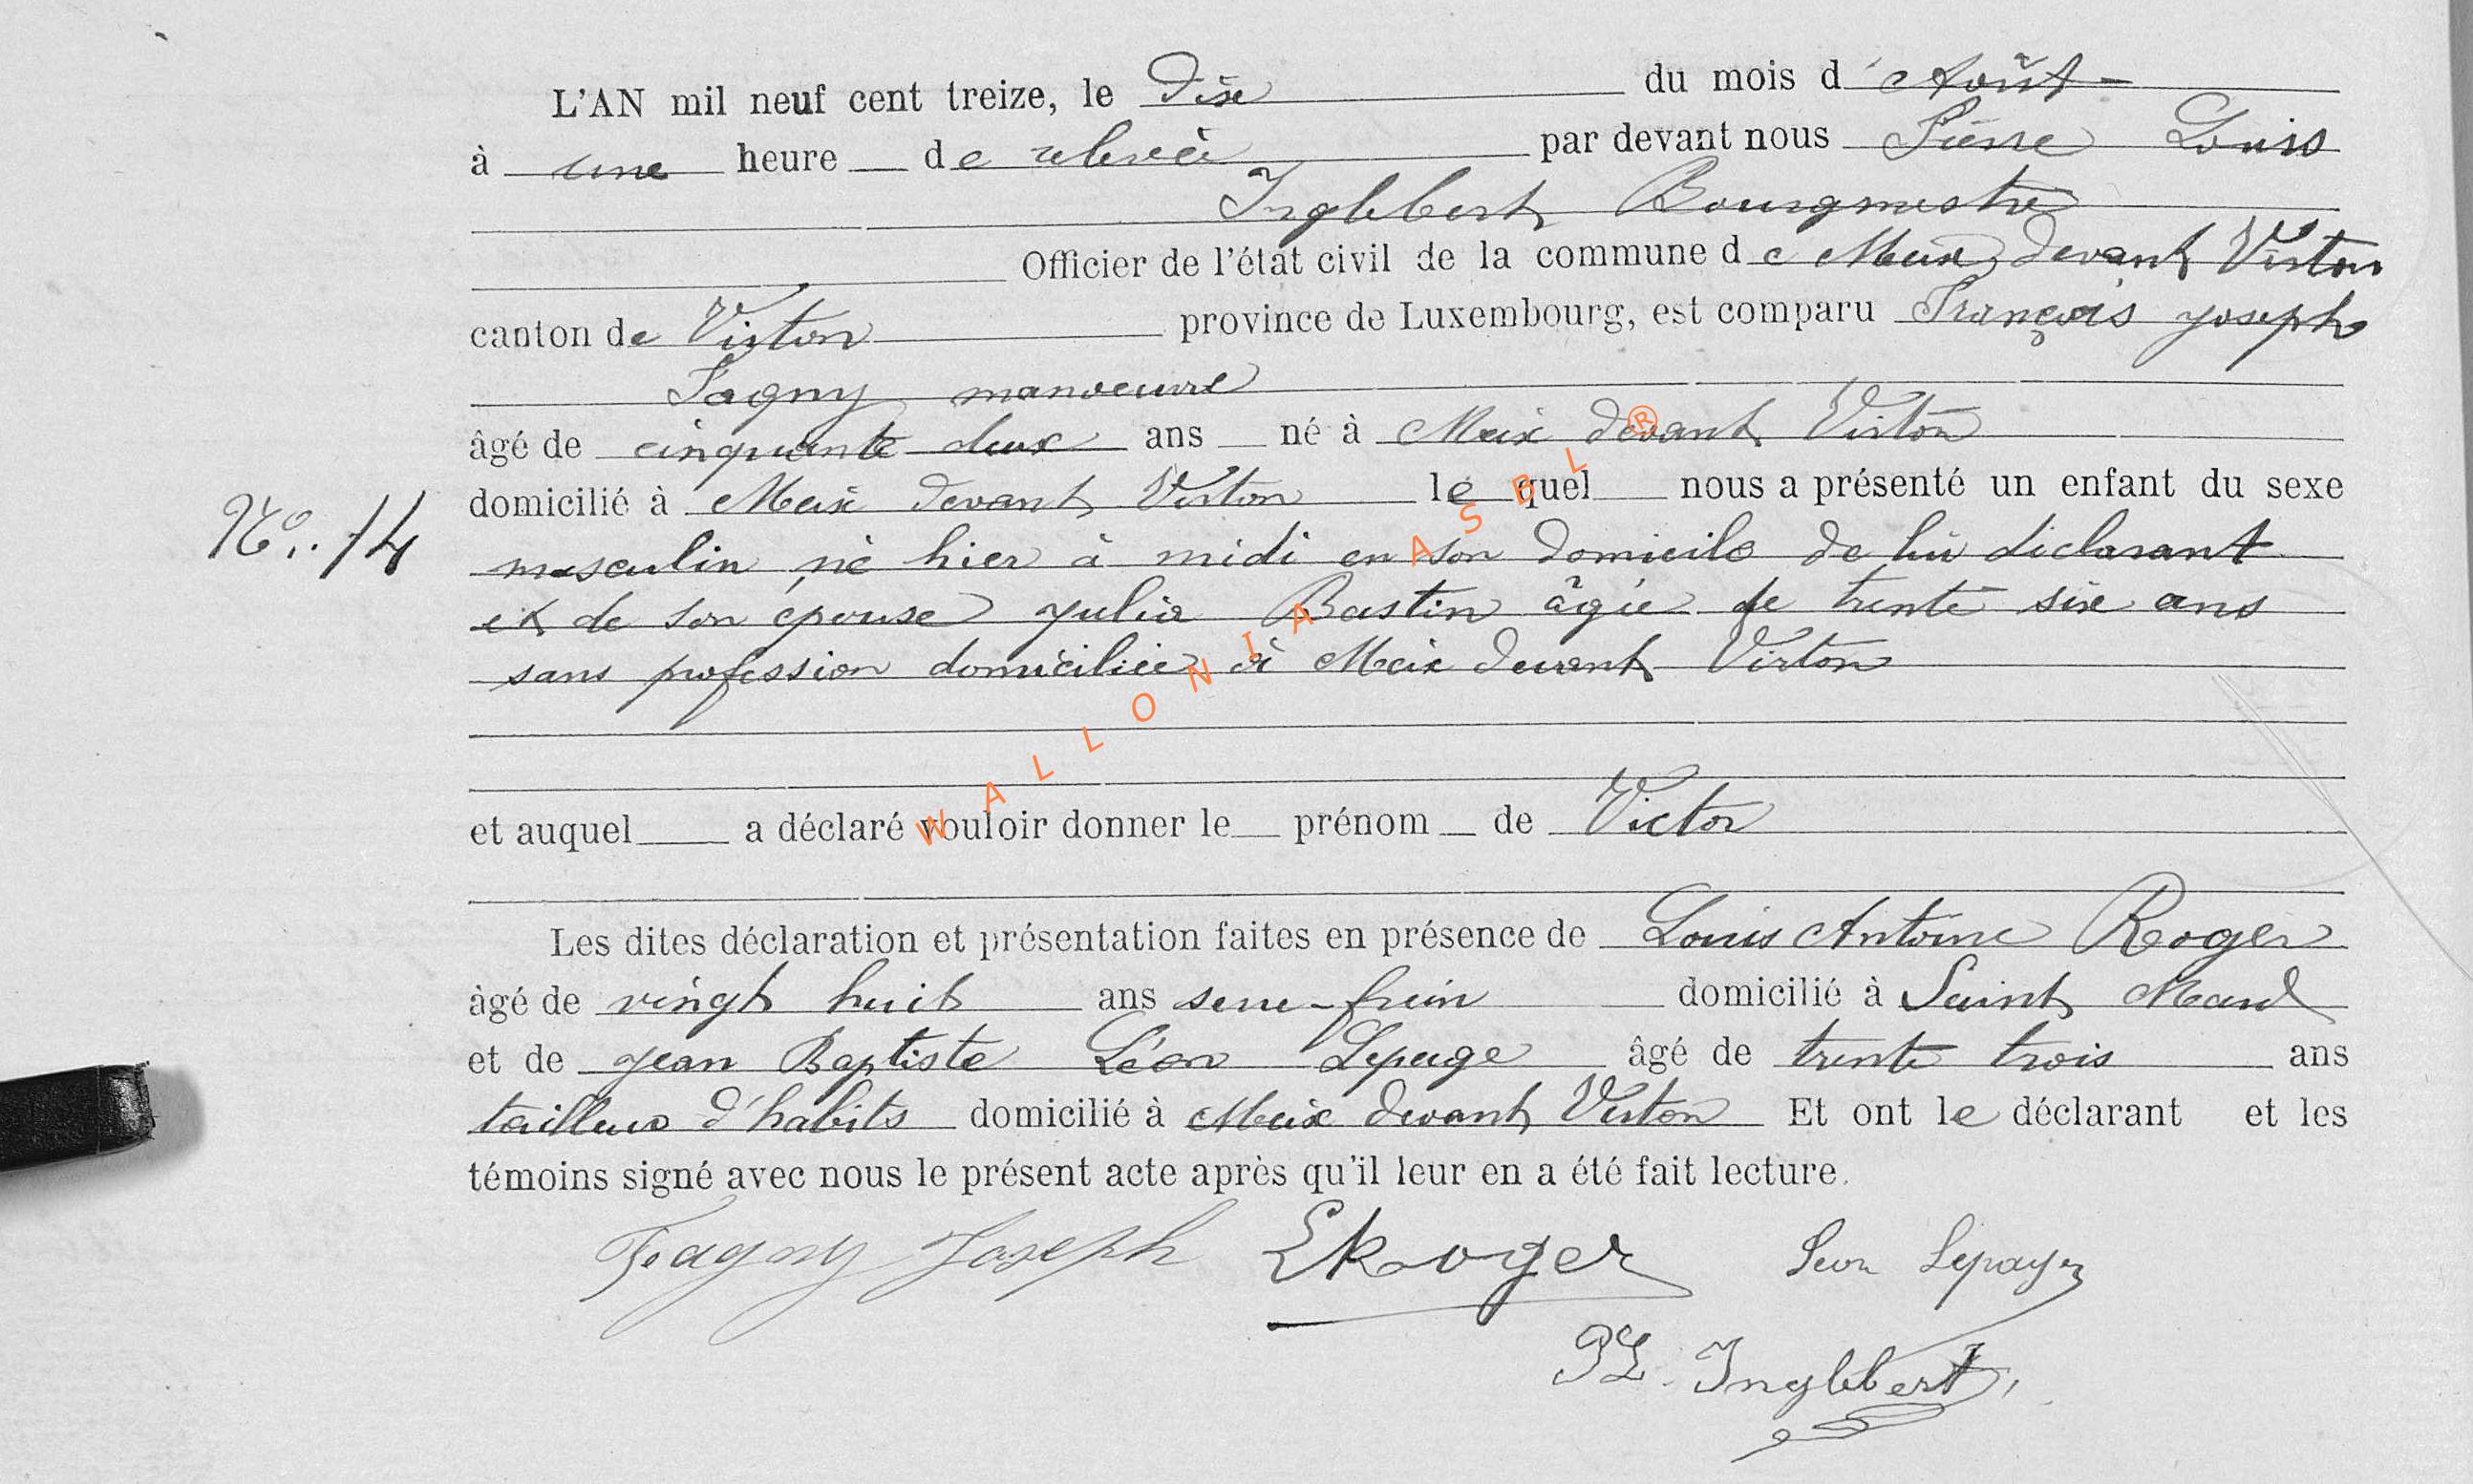 L'AN mil neuf cent treize, le Dix du mois d'Août
à une heure de relevée par devant nous Pierre Louis
Inglebert Bourgmestre
Officier de l'état civil de la commune de Meix devant Virton
canton de Virton province de Luxembourg, est comparu François Joseph
Fagny manoeuvre
âgé de cinquante deux ans né à Meix devant Virton
domicilié à Meix devant Virton lequel nous a présenté un enfant du sexe
No. 14
masculin né hier à midi en son domicile de lui déclarant
et de son épouse Julia Bastin âgée de trente six ans
sans profession domiciliée à Meix devant Virton
et auquel a déclaré vouloir donner le prénom de Victor
Les dites déclaration et présentation faites en présence de Louis Antoine Roger
âgé de vingt huit ans serre-frein domicilié à Saint Mard
et de Jean Baptiste Léon Lepage âgé de trente trois ans
tailleur d'habits domicilié à Meix devant Virton Et ont le déclarant et les
témoins signé avec nous le présent acte après qu'il leur en a été fait lecture.
Fagny Joseph LRoger Léon Lepage
PL. Inglebert
WALLONIA ASBL ®